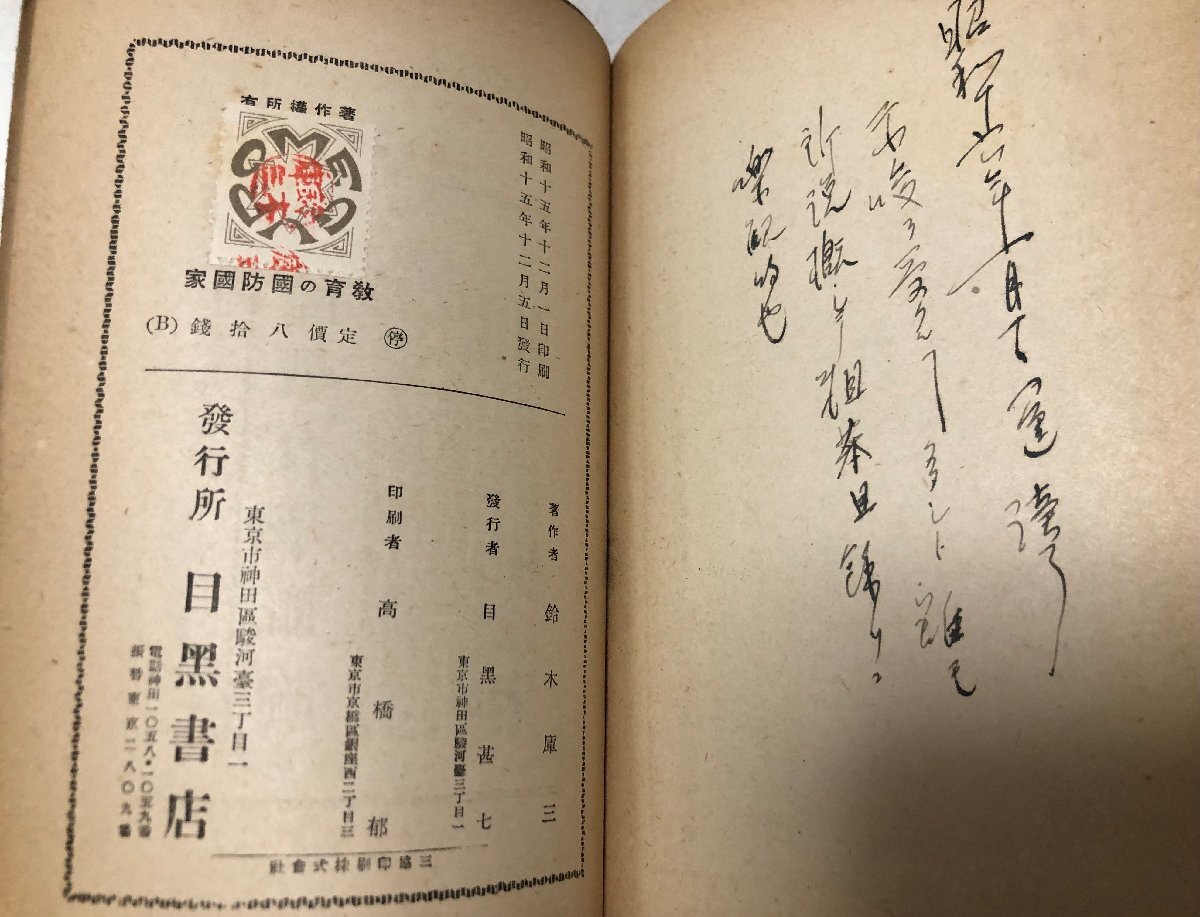 昭和十六年 月
示唆ヲ 雖モ
所説概 粗 且
樂観的也
昭和十五年十二月一日印刷
昭和十五年十二月五日發行
著作權所有
MEGURO
教育の國防國家
停 定價八拾錢 (B)
著作者 鈴木庫三
東京市神田區駿河臺三丁目一
發行者 目黑甚七
東京市京橋區銀座西二丁目三
印刷者 高橋郁
東京市神田區駿河臺三丁目一
發行所 目黑書店
電話神田一〇五八・一〇五九番
振替東京二八〇九番
三協印刷株式會社